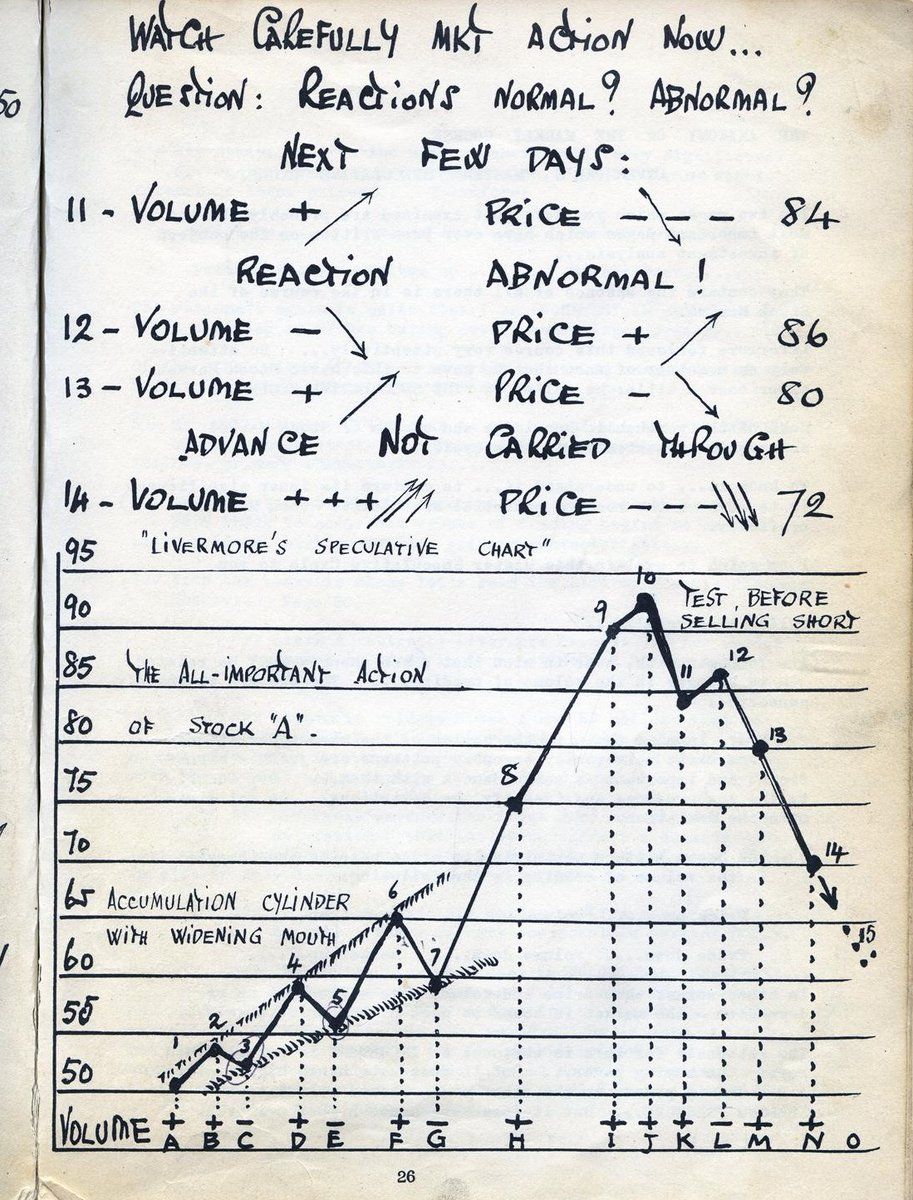 50
WATCH CAREFULLY MKT ACTION NOW...
QUESTION: REACTIONS NORMAL? ABNORMAL?
NEXT FEW DAYS:
11 - VOLUME + PRICE - - 84
REACTION ABNORMAL!
12 - VOLUME - PRICE + 86
13 - VOLUME + PRICE - 80
ADVANCE NOT CARRIED THROUGH
14 - VOLUME + + + PRICE - - - 72
95 "LIVERMORE'S SPECULATIVE CHART"
10
90 9 TEST BEFORE
SELLING SHORT
85 THE ALL-IMPORTANT ACTION 11 12
80 OF STOCK "A". 13
75 8
70 14
65 ACCUMULATION CYLINDER 6
WITH WIDENING MOUTH 15
60 4 7
55 5
2
1 3
50
VOLUME + + - + - + - + + + + - + +
A B C D E F G H I J K L M N O
26